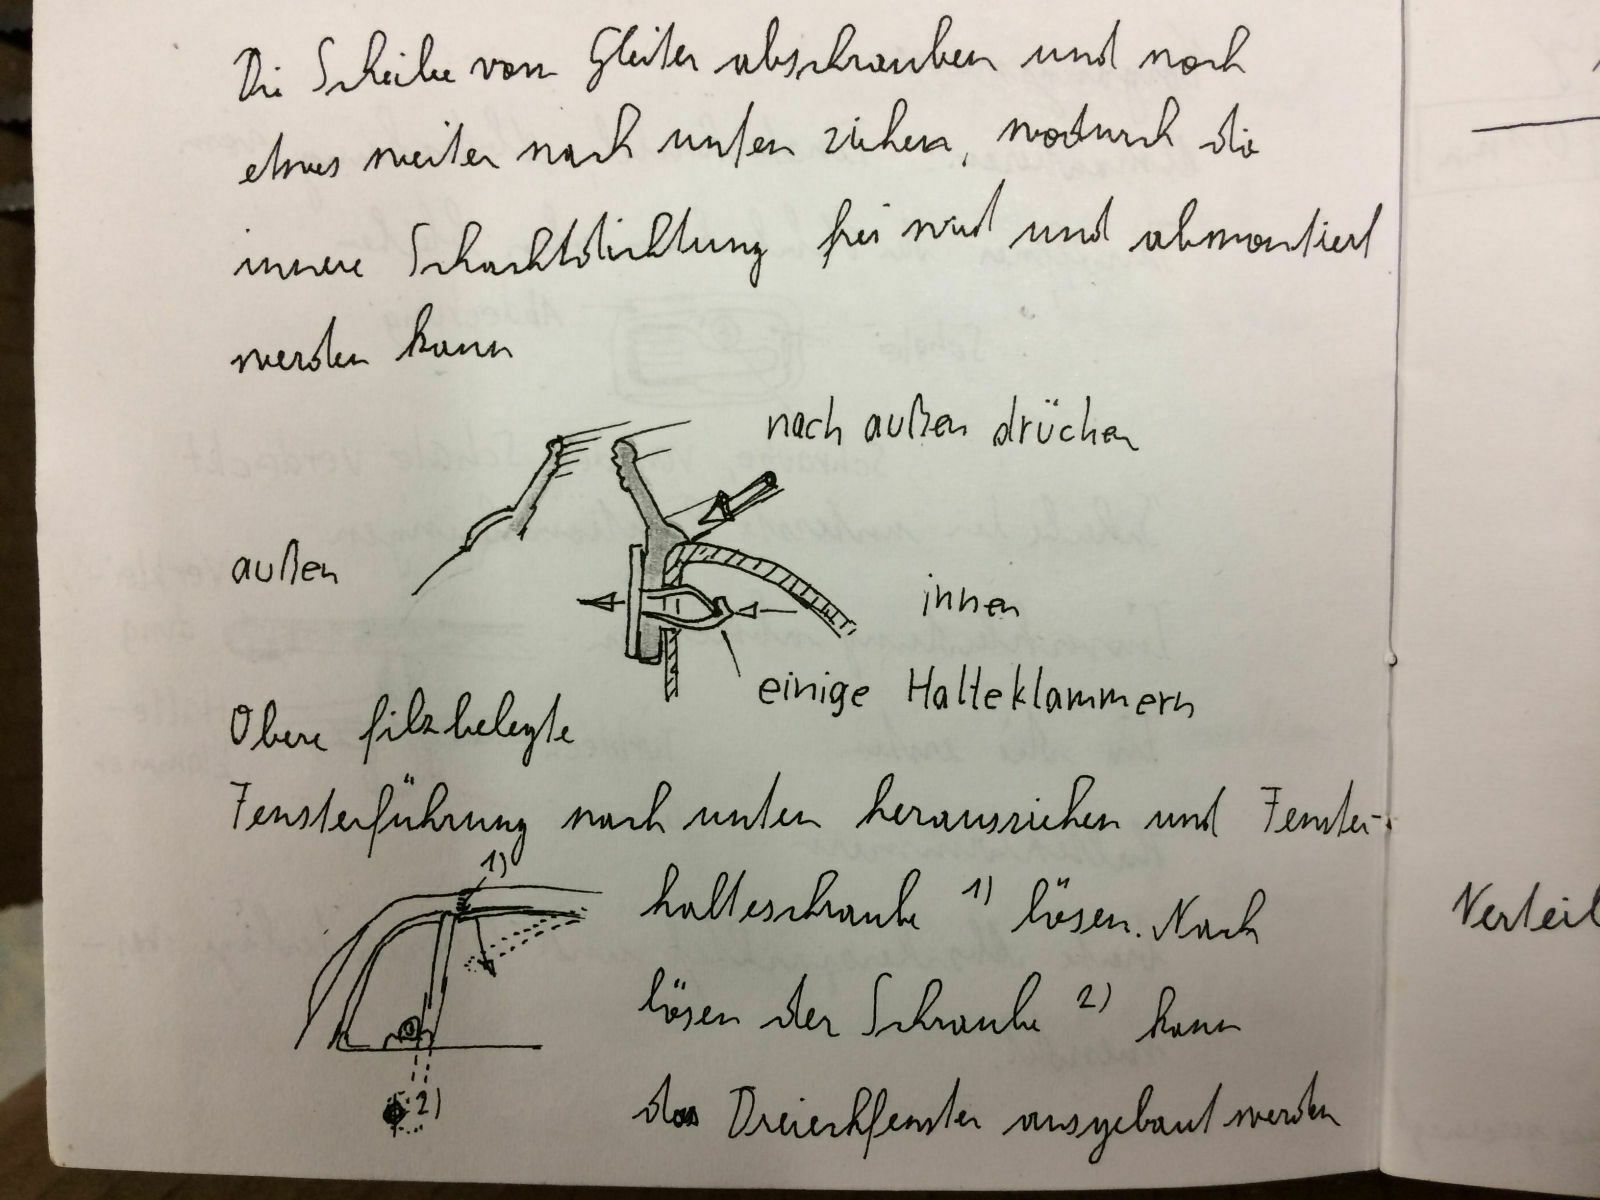 Die Scheibe vom Gleiter abschrauben und noch
etwas weiter nach unten ziehen, wodurch die
innere Schachtdichtung frei wird und abmontiert
werden kann
nach außen drücken
außen
innen
einige Halteklammern
Obere filzbelegte
Fensterführung nach unten herausziehen und Fenster-
1)
halteschraube 1) lösen. Nach
lösen der Schraube 2) kann
2)
das Dreieckfenster ausgebaut werden
Verteil